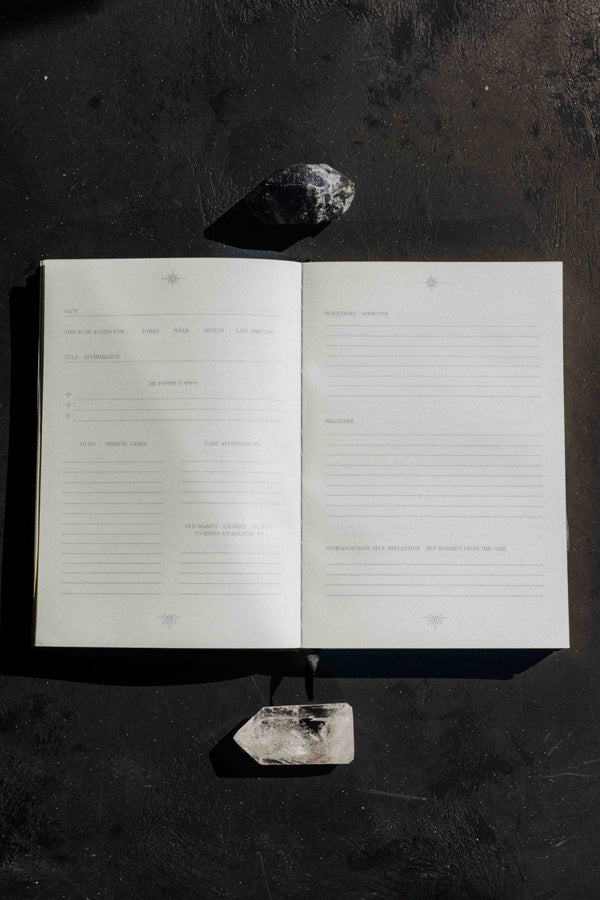 DATE
THIS IS MY FOCUS FOR : TODAY WEEK MONTH LIFE CHAPTER
TITLE · AFFIRMATION
MY FOCUS TOPICS
TO DO · MINDFUL TASKS
"I AM" AFFIRMATIONS
OLD HABITS · STORIES · BELIEFS
TO BRING AWARENESS TO
INTENTIONS · SCRIPTING
GRATITUDE
COMPASSIONATE SELF-REFLECTION · KEY INSIGHTS FROM THIS TIME